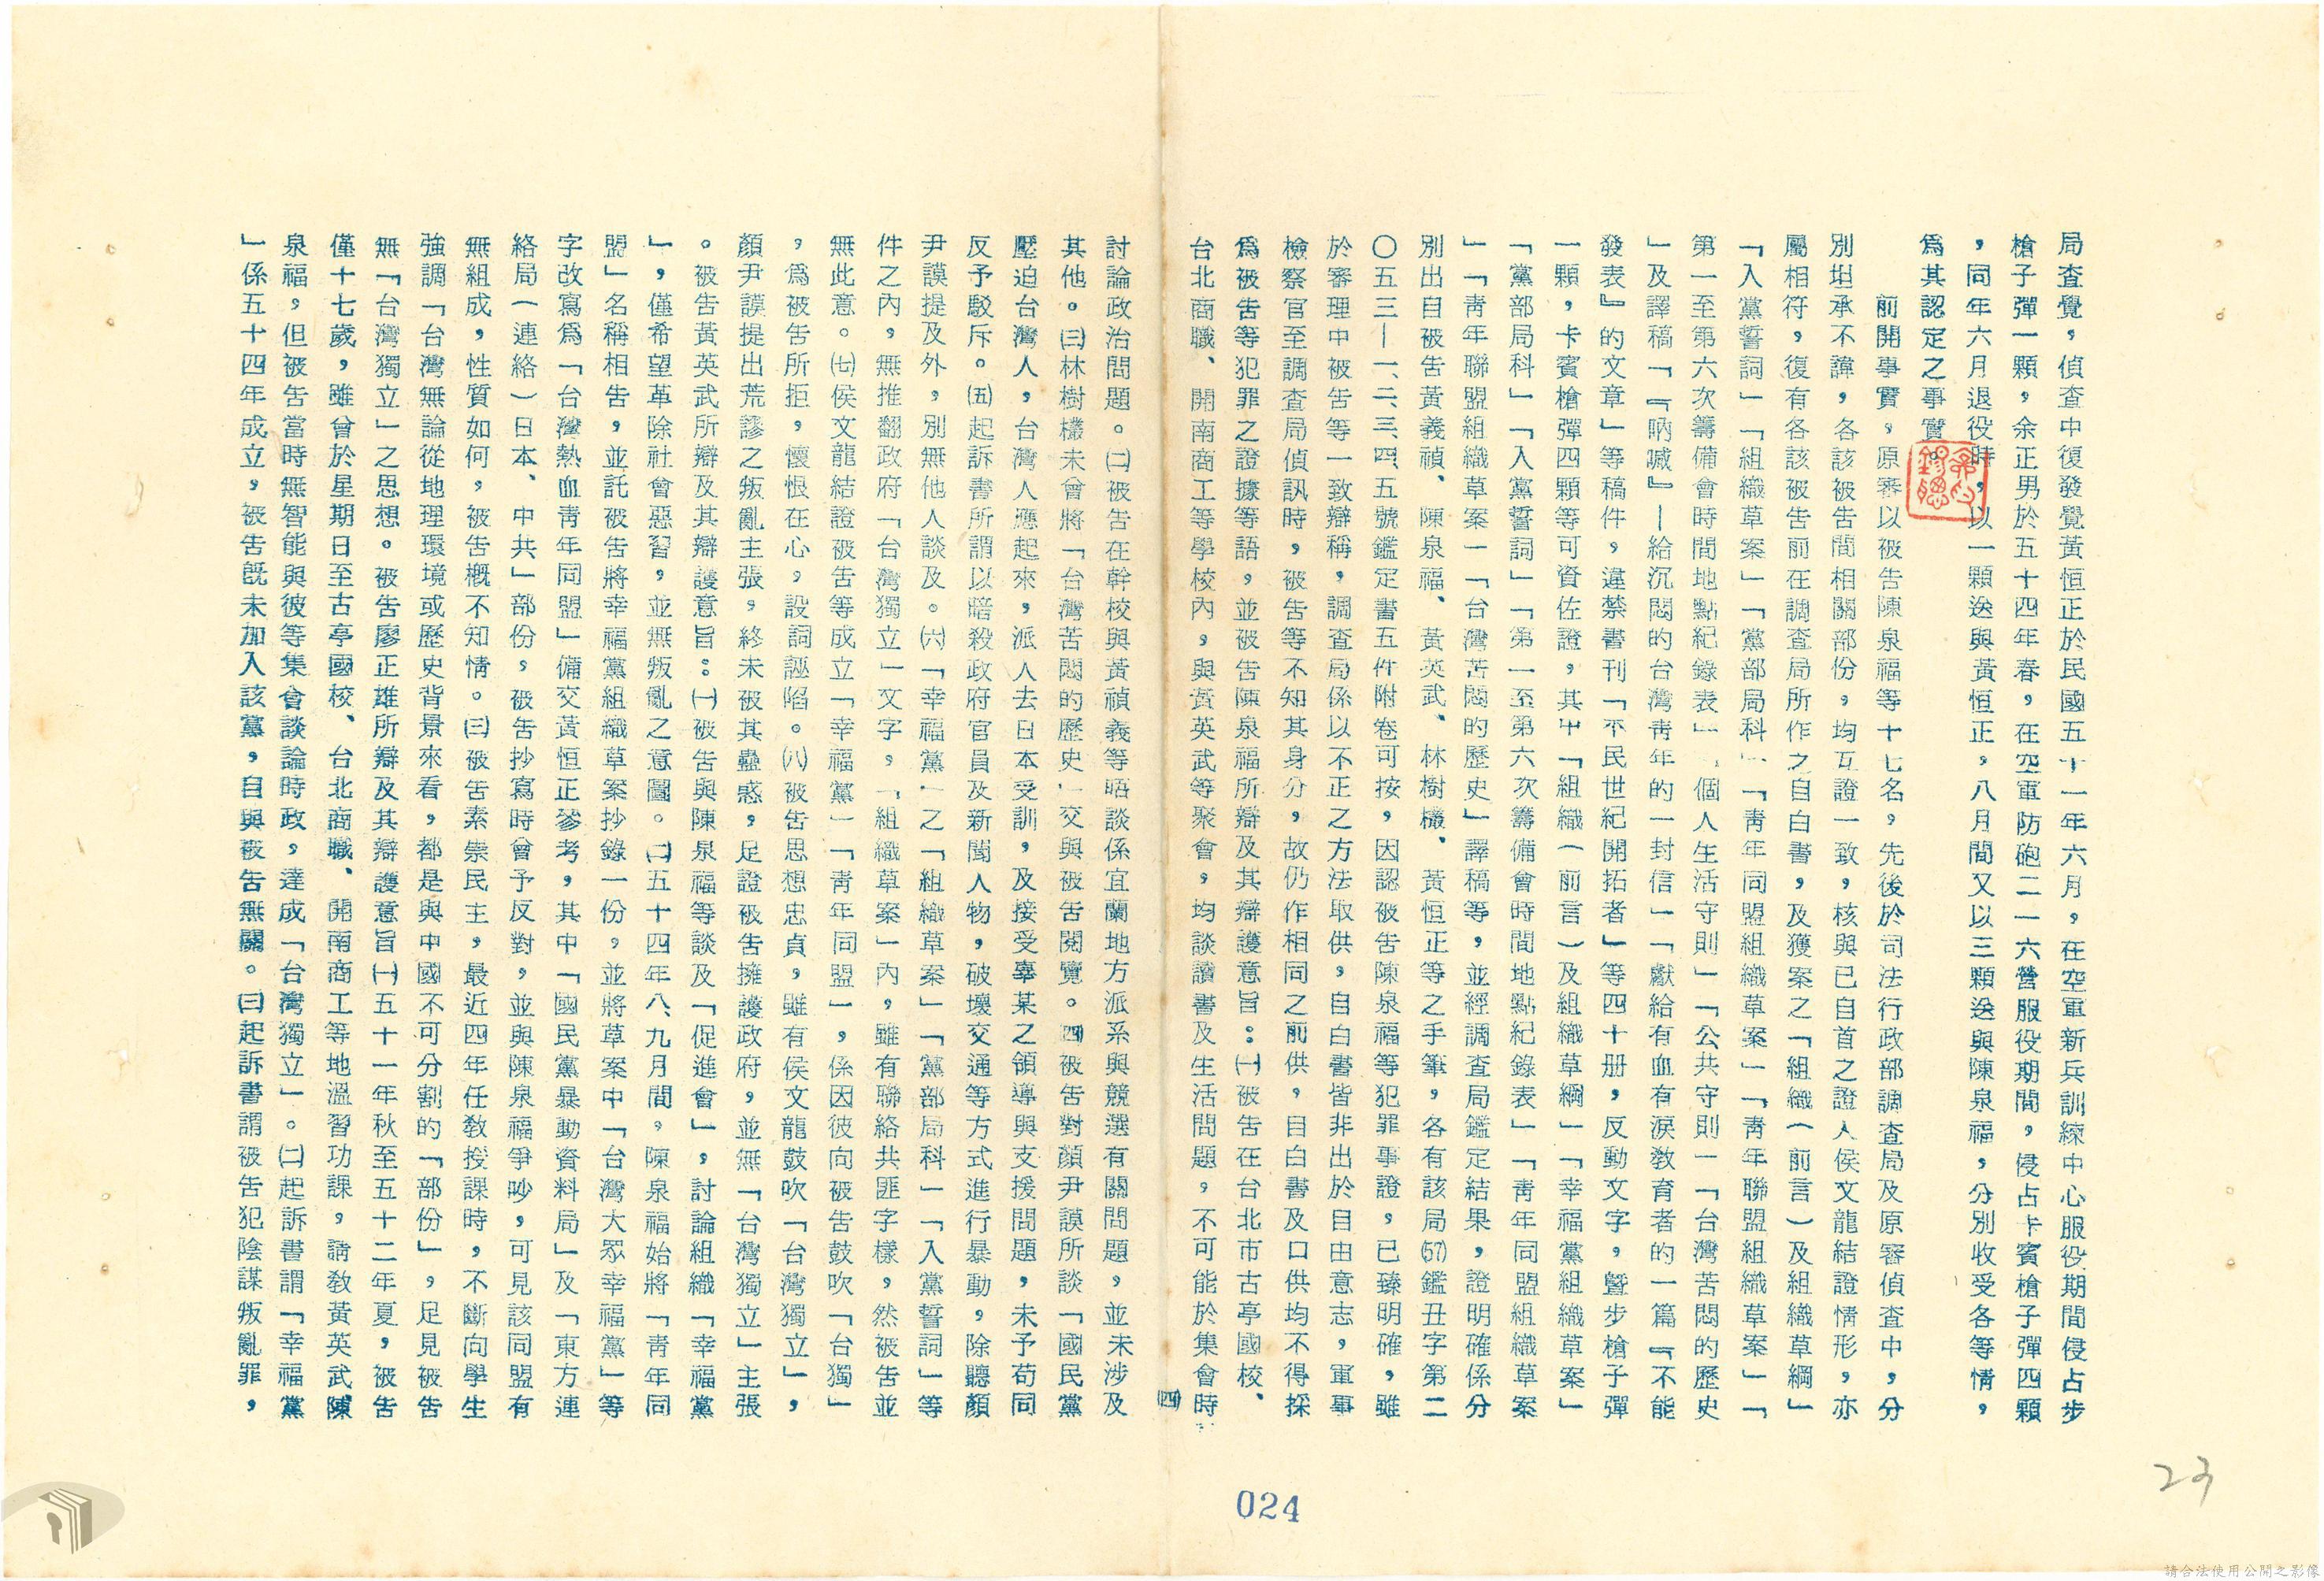 局查覺，偵查中復發覺黃恒正於民國五十一年六月，在空軍新兵訓練中心服役期間侵占步
槍子彈一顆，余正男於五十四年春，在空軍防砲二一六營服役期間，侵占卡賓槍子彈四顆
，同年六月退役時，以一顆送與黃恒正，八月間又以三顆送與陳泉福，分別收受各等情，
爲其認定之事實。
前開事實，原審以被告陳泉福等十七名，先後於司法行政部調查局及原審偵查中，分
別坦承不諱，各該被告間相關部份，均互證一致，核與已自首之證人侯文龍結證情形，亦
屬相符，復有各該被告前在調查局所作之自白書，及獲案之「組織（前言）及組織草綱」
「入黨誓詞」「組織草案」「黨部局科」「青年同盟組織草案」「青年聯盟組織草案」「
第一至第六次籌備會時間地點紀錄表」「個人生活守則」「公共守則」「台灣苦悶的歷史
」及譯稿「『吶喊』—給沉悶的台灣青年的一封信」「獻給有血有淚教育者的一篇『不能
發表』的文章」等稿件，違禁書刊「不民世紀開拓者」等四十册，反動文字，暨步槍子彈
一顆，卡賓槍彈四顆等可資佐證，其中「組織（前言）及組織草綱」「幸福黨組織草案」
「黨部局科」「入黨誓詞」「第一至第六次籌備會時間地點紀錄表」「青年同盟組織草案
」「青年聯盟組織草案」「台灣苦悶的歷史」譯稿等，並經調查局鑑定結果，證明確係分
別出自被告黃義禎、陳泉福、黃英武、林樹欉、黃恒正等之手筆，各有該局(57)鑑丑字第二
〇五三—一、二、三、四、五號鑑定書五件附卷可按，因認被告陳泉福等犯罪事證，已臻明確，雖
於審理中被告等一致辯稱，調查局係以不正之方法取供，自白書皆非出於自由意志，軍事
檢察官至調查局偵訊時，被告等不知其身分，故仍作相同之前供，自白書及口供均不得採
爲被告等犯罪之證據等語，並被告陳泉福所辯及其辯護意旨：㈠被告在台北市古亭國校、
台北商職、開南商工等學校內，與黃英武等聚會，均談讀書及生活問題，不可能於集會時
㈣
討論政治問題。㈡被告在幹校與黃禎義等晤談係宜蘭地方派系與競選有關問題，並未涉及
其他。㈢林樹欉未曾將「台灣苦悶的歷史」交與被告閱覽。㈣被告對顏尹謨所談「國民黨
壓迫台灣人，台灣人應起來，派人去日本受訓，及接受辜某之領導與支援問題，未予苟同
反予駁斥。㈤起訴書所謂以暗殺政府官員及新聞人物，破壞交通等方式進行暴動，除聽顏
尹謨提及外，別無他人談及。㈥「幸福黨」之「組織草案」「黨部局科」「入黨誓詞」等
件之內，無推翻政府「台灣獨立」文字，「組織草案」內，雖有聯絡共匪字樣，然被告並
無此意。㈦侯文龍結證被告等成立「幸福黨」「青年同盟」，係因彼向被告鼓吹「台獨」
，爲被告所拒，懷恨在心，設詞誣陷。㈧被告思想忠貞，雖有侯文龍鼓吹「台灣獨立」，
顏尹謨提出荒謬之叛亂主張，終未被其蠱惑，足證被告擁護政府，並無「台灣獨立」主張
。被告黃英武所辯及其辯護意旨：㈠被告與陳泉福等談及「促進會」，討論組織「幸福黨
」，僅希望革除社會惡習，並無叛亂之意圖。㈡五十四年八、九月間，陳泉福始將「青年同
盟」名稱相告，並託被告將幸福黨組織草案抄錄一份，並將草案中「台灣大眾幸福黨」等
字改寫爲「台灣熱血青年同盟」備交黃恒正參考，其中「國民黨暴動資料局」及「東方連
絡局（連絡）日本、中共」部份，被告抄寫時會予反對，並與陳泉福爭吵，可見該同盟有
無組成，性質如何，被告概不知情。㈢被告素崇民主，最近四年任教授課時，不斷向學生
強調「台灣無論從地理環境或歷史背景來看，都是與中國不可分割的「部份」，足見被告
無「台灣獨立」之思想。被告廖正雄所辯及其辯護意旨㈠五十一年秋至五十二年夏，被告
僅十七歲，雖曾於星期日至古亭國校、台北商職、開南商工等地溫習功課，請教黃英武陳
泉福，但被告當時無智能與彼等集會談論時政，達成「台灣獨立」。㈡起訴書謂「幸福黨
」係五十四年成立，被告旣未加入該黨，自與被告無關。㈢起訴書謂被告犯陰謀叛亂罪，
024
23
請合法使用公開之影像